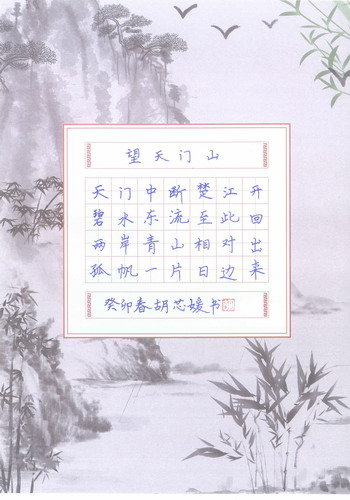 望天门山
天门中断楚江开
碧水东流至此回
两岸青山相对出
孤帆一片日边来
癸卯春胡芯媛书